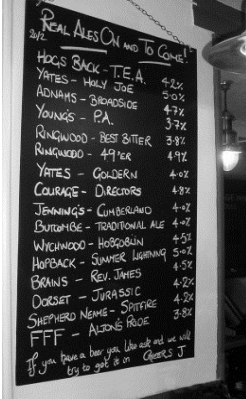 REAL ALES ON AND TO COME!
20/2
HOGS BACK - T.E.A. 4.2%
YATES - HOLY JOE 5.0%
ADNAMS - BROADSIDE 4.7%
YOUNG'S - P.A. 3.7%
RINGWOOD - BEST BITTER 3.8%
RINGWOOD - 49'ER 4.9%
YATES - GOLDERN 4.0%
COURAGE - DIRECTORS 4.8%
JENNING'S - CUMBERLAND 4.0%
BUTCOMBE - TRADITIONAL ALE 4.0%
WYCHWOOD - HOBGOBLIN 4.5%
HOPBACK - SUMMER LIGHTNING 5.0%
BRAINS - REV. JAMES 4.5%
DORSET - JURASSIC 4.2%
SHEPHERD NEAME - SPITFIRE 4.2%
FFF - ALTON'S PRIDE 3.8%
If you have a beer you like ask and we will
try to get it on